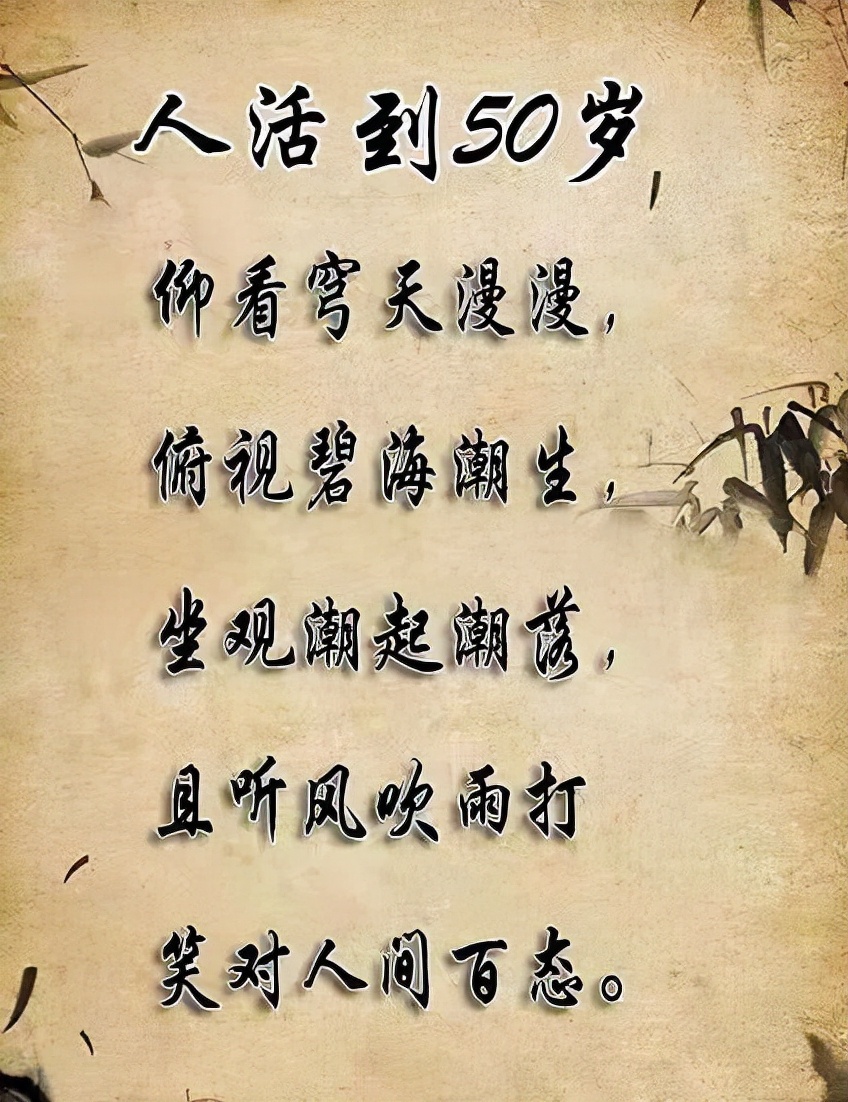 人活到50岁
仰看穹天漫漫，
俯视碧海潮生，
坐观潮起潮落，
且听风吹雨打
笑对人间百态。